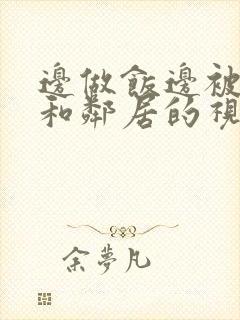 邊做飯邊被
和鄰居的視
余夢凡